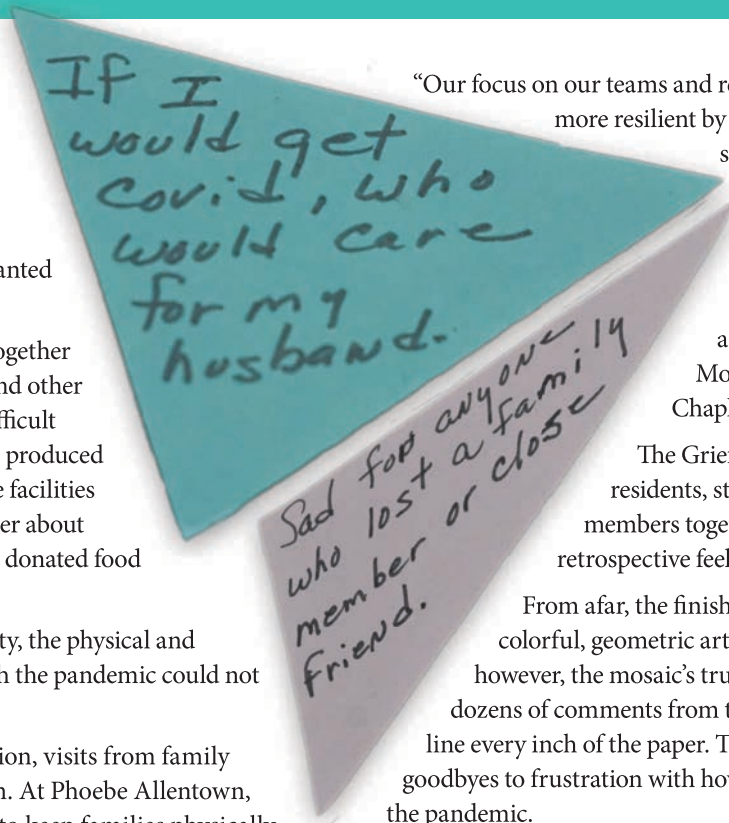 If I
would get
covid, who
would care
for my
husband.
Sad for anyone
who lost a family
member or close
friend.
anted
ogether
nd other
fficult
produced
e facilities
er about
donated food
ty, the physical and
h the pandemic could not
ion, visits from family
n. At Phoebe Allentown,
to keep families physically
“Our focus on our teams and re
more resilient by
s
a
Mo
Chapl
The Grie
residents, st
members toge
retrospective feel
From afar, the finish
colorful, geometric art
however, the mosaic’s tru
dozens of comments from t
line every inch of the paper. T
goodbyes to frustration with how
the pandemic.